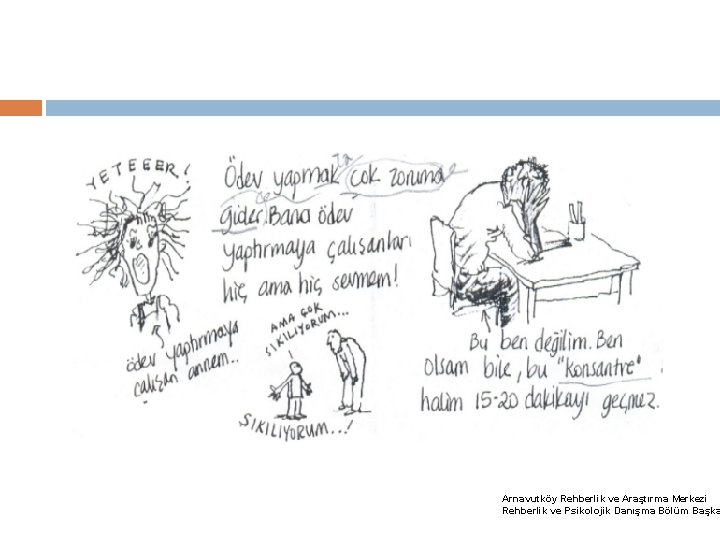 YETEEER!
Ödev yapmak çok zoruma
gider. Bana ödev
yaptırmaya çalışanları
hiç ama hiç sevmem!
ödev yaptırmaya
çalışan annem..
AMA ÇOK
SIKILIYORUM...
SIKILIYORUM...!
Bu ben değilim. Ben
olsam bile, bu "konsantre"
halim 15-20 dakikayı geçmez.
Arnavutköy Rehberlik ve Araştırma Merkezi
Rehberlik ve Psikolojik Danışma Bölüm Başka